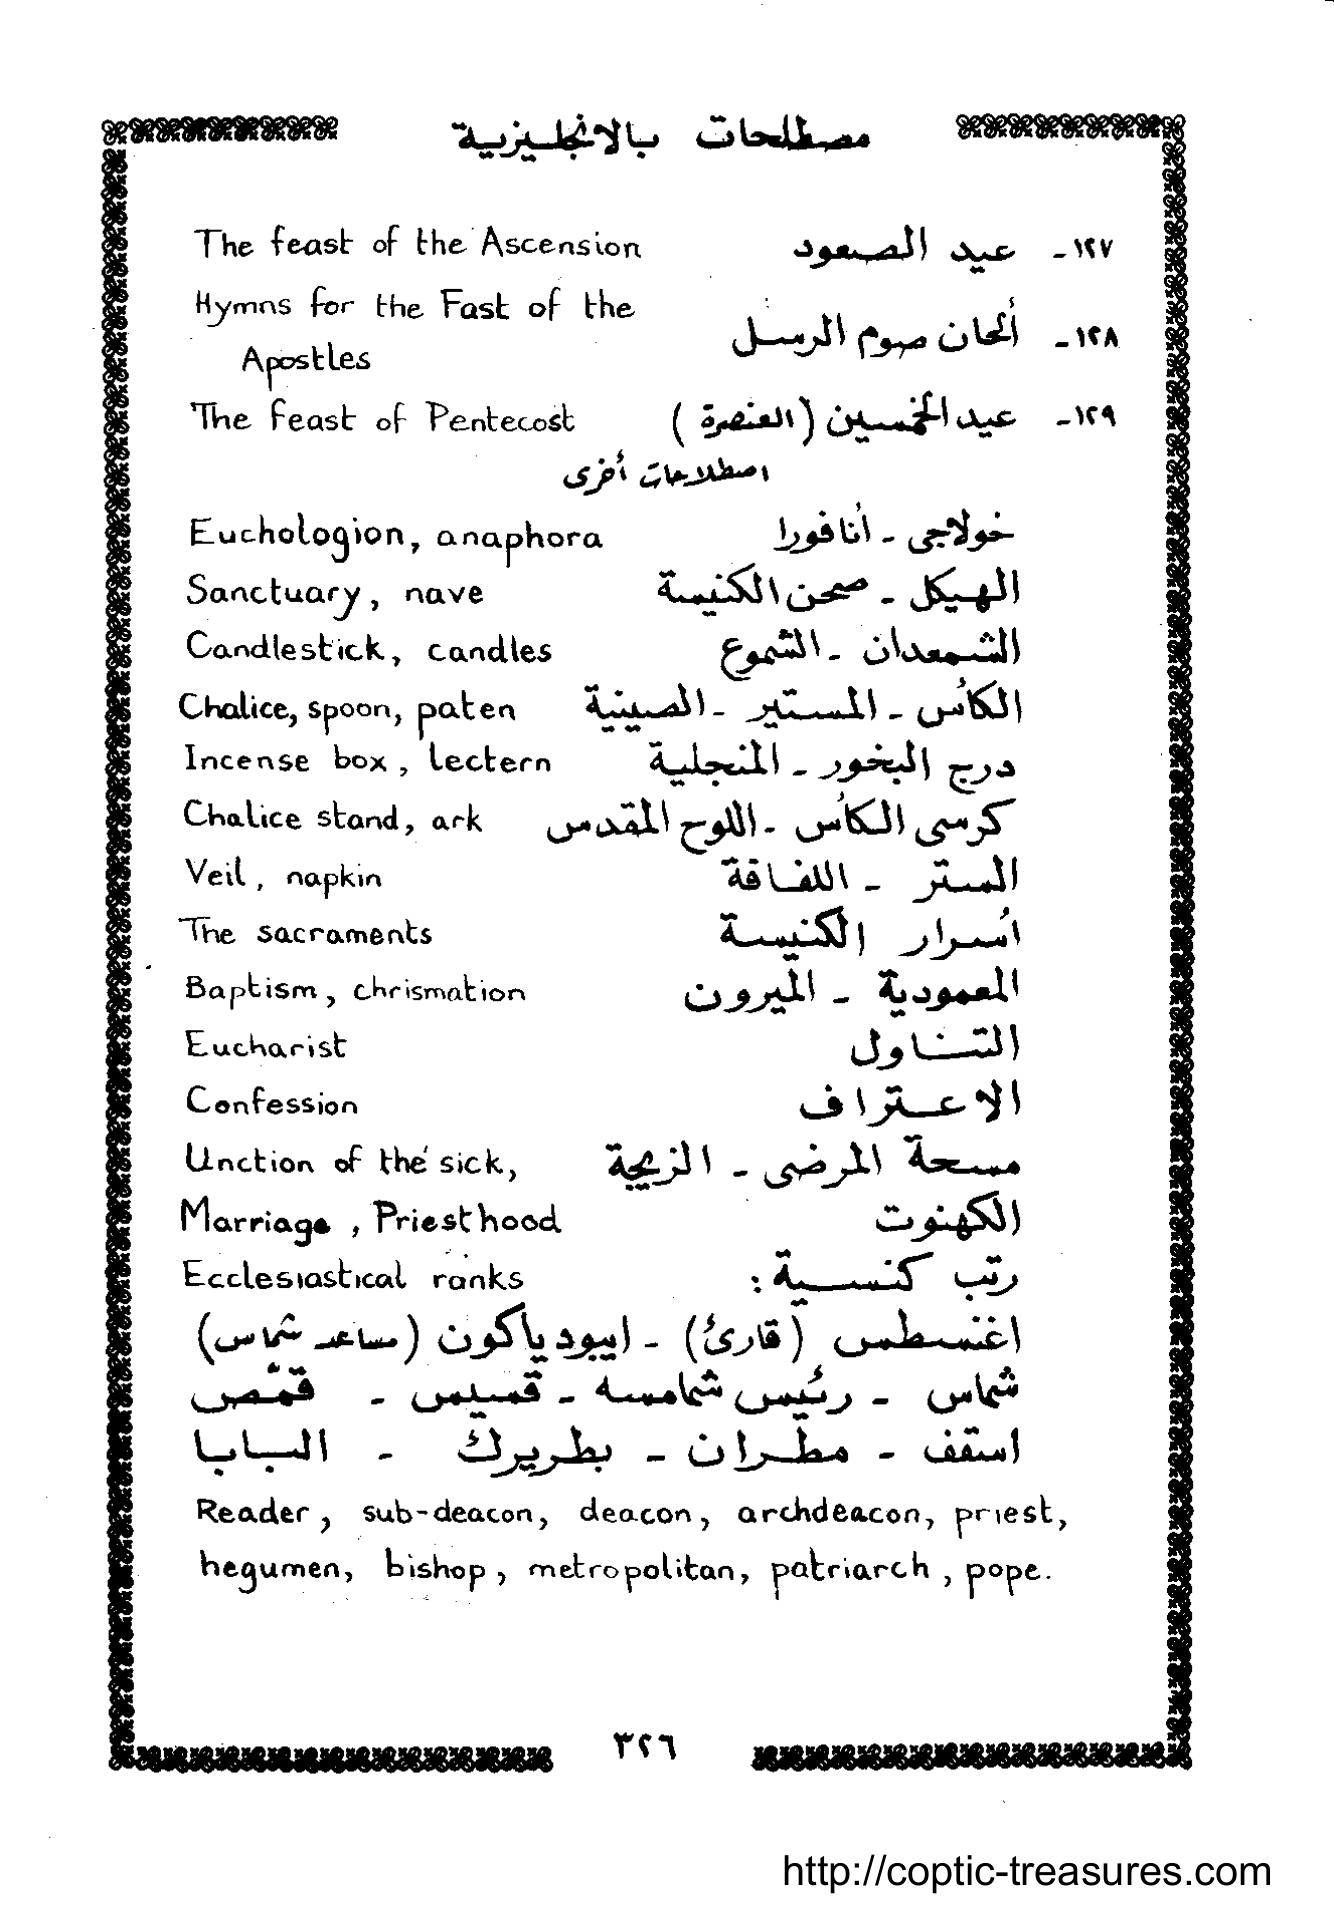 مصطلحات بالانجليزية
The feast of the Ascension عيد الصعود ١٢٧-
Hymns for the Fast of the
Apostles ألحان صوم الرسل ١٢٨-
The feast of Pentecost عيد الخمسين (العنصرة) ١٢٩-
اصطلاحات أخرى
Euchologion, anaphora خولاجى - أنافورا
Sanctuary, nave الهيكل - صحن الكنيسة
Candlestick, candles الشمعدان - الشموع
Chalice, spoon, paten الكأس - المستير - الصينية
Incense box, lectern درج البخور - المنجلية
Chalice stand, ark كرسى الكأس - اللوح المقدس
Veil, napkin الستر - اللفافة
The sacraments أسرار الكنيسة
Baptism, chrismation المعمودية - الميرون
Eucharist التناول
Confession الاعتراف
Unction of the sick, مسحة المرضى - الزيجة
Marriage, Priesthood الكهنوت
Ecclesiastical ranks رتب كنسية :
اغنسطس (قارئ) - ايبودياكون (مساعد شماس)
شماس - رئيس شمامسه - قسيس - قمّص
اسقف - مطران - بطريرك - البابا
Reader, sub-deacon, deacon, archdeacon, priest,
hegumen, bishop, metropolitan, patriarch, pope.
٣٢٦
http://coptic-treasures.com